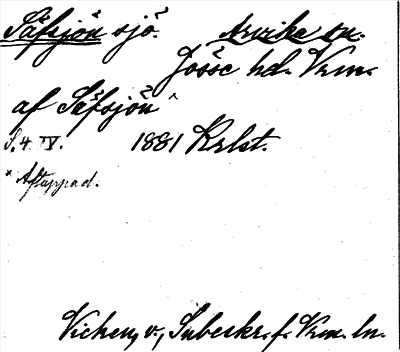 Säfsjön sjö. Arvika sn.
Jösse hd. Vrm.
af Säfsjön ^
S. 4. IV. 1881 Krlst.
* Aftappad.
Vicken, v., Inbeskr. f. Vrm. ln.